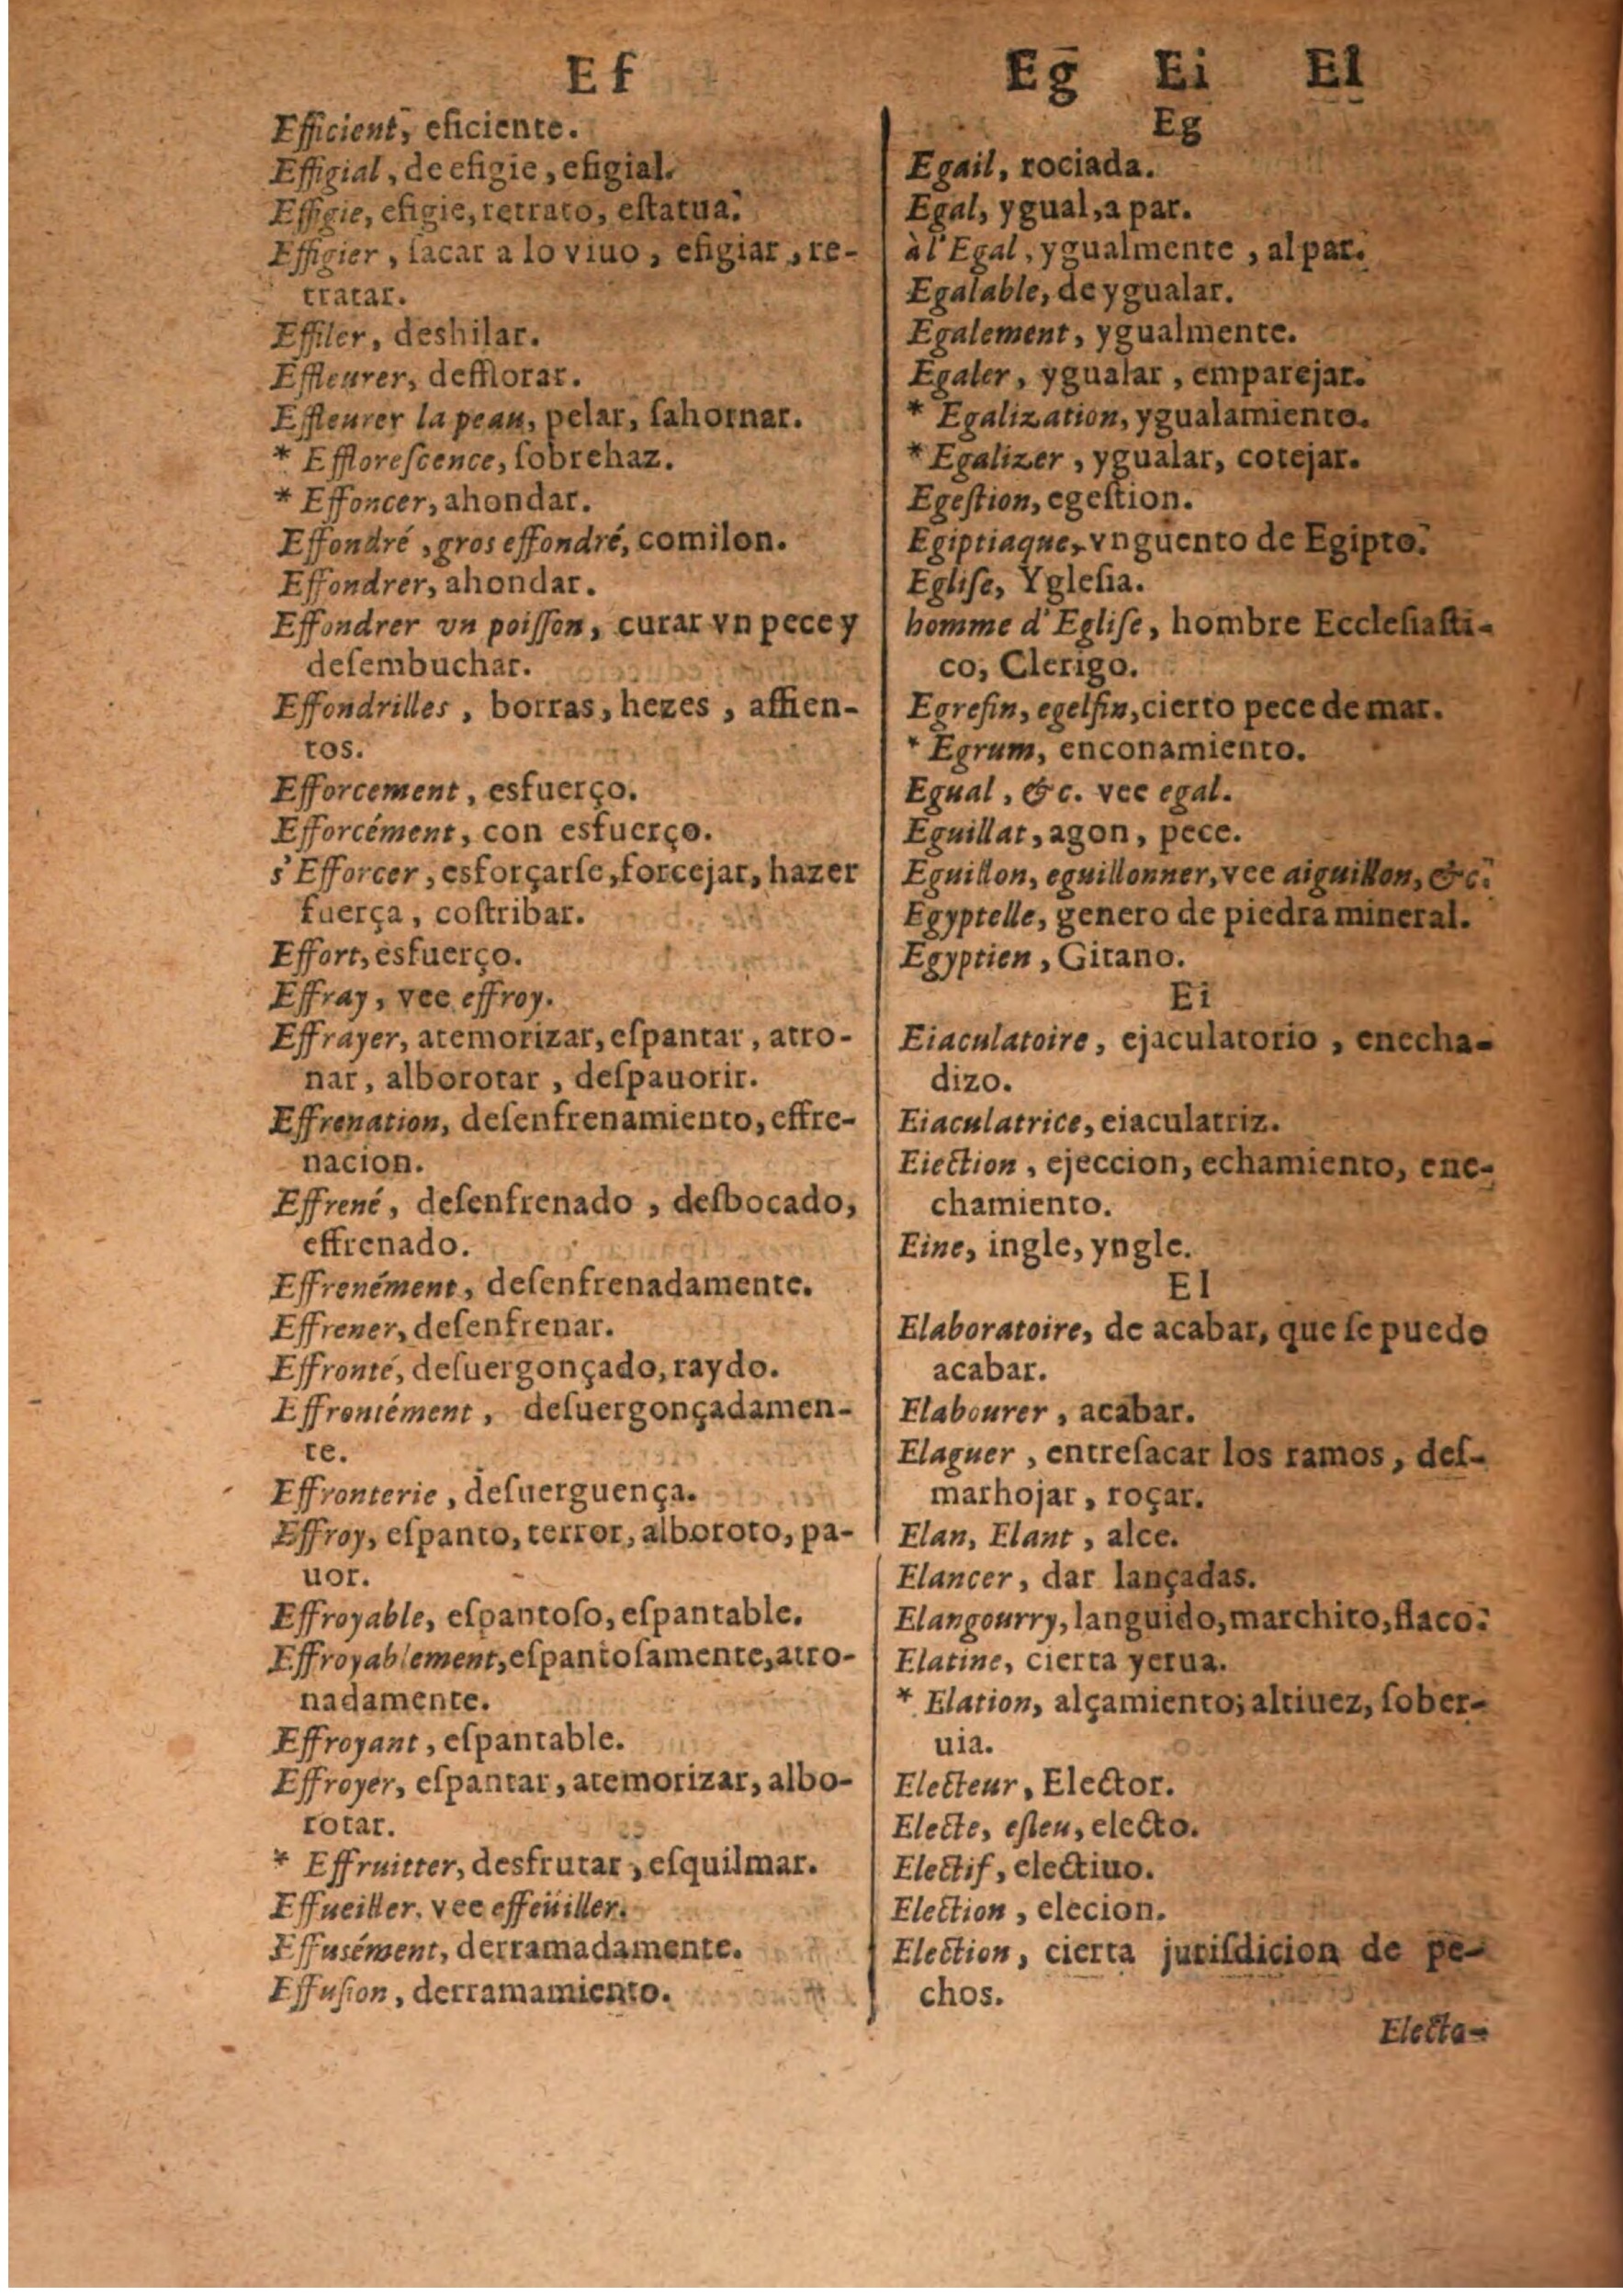 Ef
Efficient, eficiente.
Effigial, de efigie, efigial.
Effigie, efigie, retrato, eſtatua.
Effigier, ſacar a lo viuo, efigiar, re-
tratar.
Effiler, deshilar.
Effleurer, defflorar.
Effleurer la peau, pelar, ſahornar.
* Effloreſcence, ſobrehaz.
* Effoncer, ahondar.
Effondré, gros effondré, comilon.
Effondrer, ahondar.
Effondrer vn poiſſon, curar vn pece y
deſembuchar.
Effondrilles, borras, hezes, aſſien-
tos.
Efforcement, esfuerço.
Efforcément, con esfuerço.
s'Efforcer, esforçarſe, forcejar, hazer
fuerça, coſtribar.
Effort, esfuerço.
Effray, vee effroy.
Effrayer, atemorizar, eſpantar, atro-
nar, alborotar, deſpauorir.
Effrenation, deſenfrenamiento, effre-
nacion.
Effrené, deſenfrenado, deſbocado,
effrenado.
Effrenément, deſenfrenadamente.
Effrener, deſenfrenar.
Effronté, deſuergonçado, raydo.
Effrontément, deſuergonçadamen-
te.
Effronterie, deſuerguença.
Effroy, eſpanto, terror, alboroto, pa-
uor.
Effroyable, eſpantoſo, eſpantable.
Effroyablement, eſpantoſamente, atro-
nadamente.
Effroyant, eſpantable.
Effroyer, eſpantar, atemorizar, albo-
rotar.
* Effruitter, desfrutar, eſquilmar.
Effueiller. vee effeüiller.
Effusément, derramadamente.
Effuſion, derramamiento.
Eg Ei El
Eg
Egail, rociada.
Egal, ygual, a par.
à l'Egal, ygualmente, al par.
Egalable, de ygualar.
Egalement, ygualmente.
Egaler, ygualar, emparejar.
* Egalization, ygualamiento.
* Egalizer, ygualar, cotejar.
Egeſtion, egeſtion.
Egiptiaque, vnguento de Egipto.
Egliſe, Ygleſia.
homme d'Egliſe, hombre Eccleſiaſti-
co, Clerigo.
Egrefin, egelfin, cierto pece de mar.
* Egrum, enconamiento.
Egual, &c. vee egal.
Eguillat, agon, pece.
Eguillon, eguillonner, vee aiguillon, &c.
Egyptelle, genero de piedra mineral.
Egyptien, Gitano.
Ei
Eiaculatoire, ejaculatorio, enecha-
dizo.
Eiaculatrice, eiaculatriz.
Eiection, ejeccion, echamiento, ene-
chamiento.
Eine, ingle, yngle.
El
Elaboratoire, de acabar, que ſe puede
acabar.
Elabourer, acabar.
Elaguer, entreſacar los ramos, deſ-
marhojar, roçar.
Elan, Elant, alce.
Elancer, dar lançadas.
Elangourry, languido, marchito, flaco.
Elatine, cierta yerua.
* Elation, alçamiento; altiuez, ſober-
uia.
Electeur, Elector.
Electe, eſleu, electo.
Electif, electiuo.
Election, elecion.
Election, cierta juriſdicion de pe-
chos.
Electa-